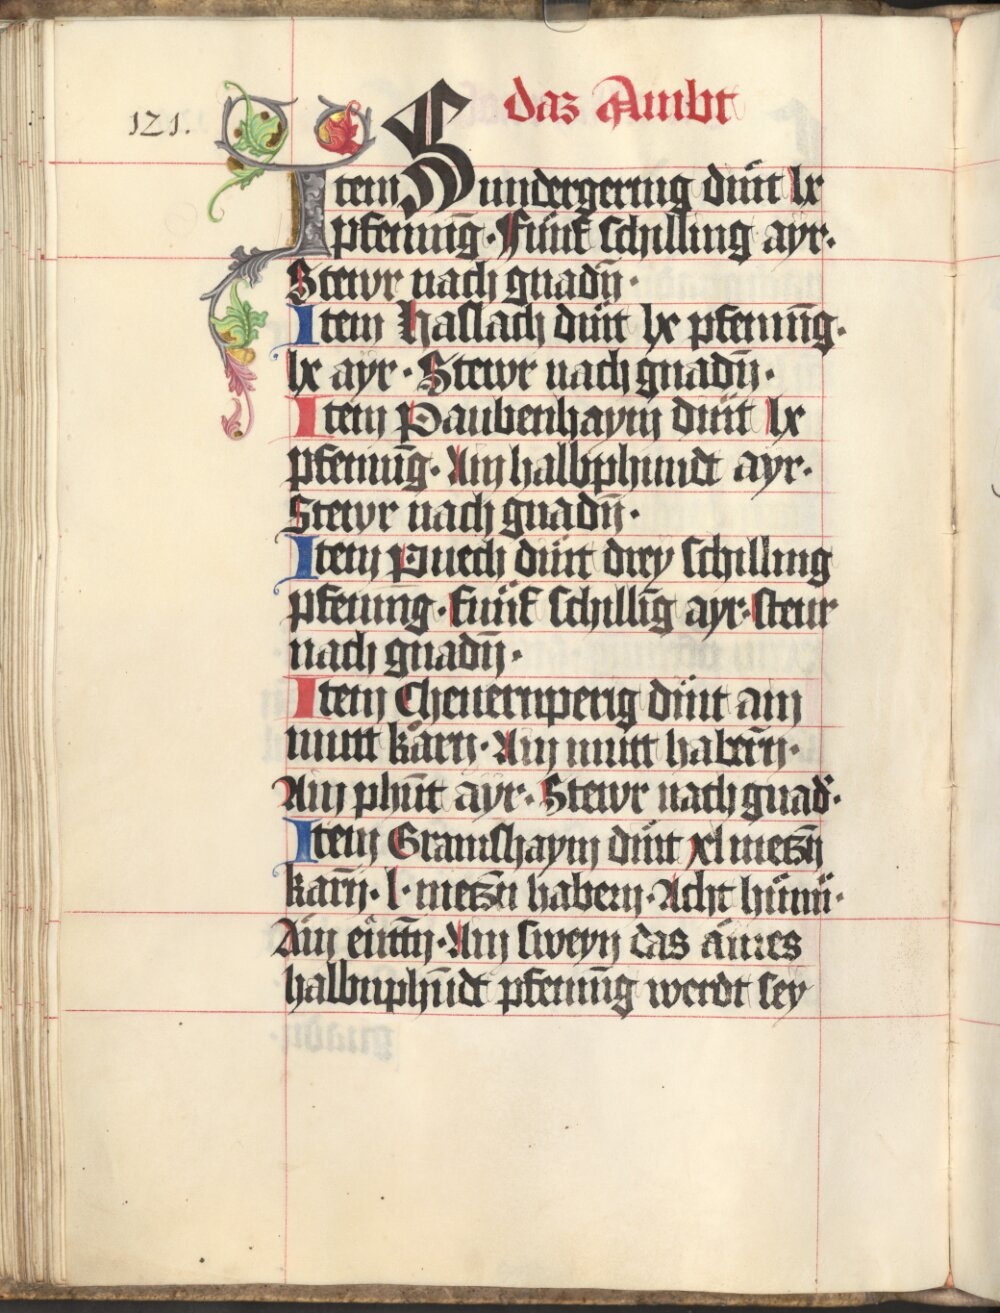 das Ambt
121.
Item Sundergering dint lx
pfeninḡ. Fünf schilling ayr.
Stewr nach gnadn̄.
Item Haslach dint lx pfeninḡ.
lx ayr. Stewr nach gnadn̄.
Item Paubenhaym dint lx
pfeninḡ. Ain halbphundt ayr.
Stewr nach gnadn̄.
Item Puech dint drey schilling
pfening. fünf schillīg ayr. steur
nach gnadn̄.
Item Cheuernperig dint ain
mutt karn. Ain mutt habern̄.
Ain phūt ayr. Stewr nach gnad̄.
Item Gramshaym dint xl meczn̄
karn̄. l. meczn̄ habern. Acht hünr̄.
Ain enttn̄. Ain sweyn das aines
halbnphūdt pfeninḡ werdt sey